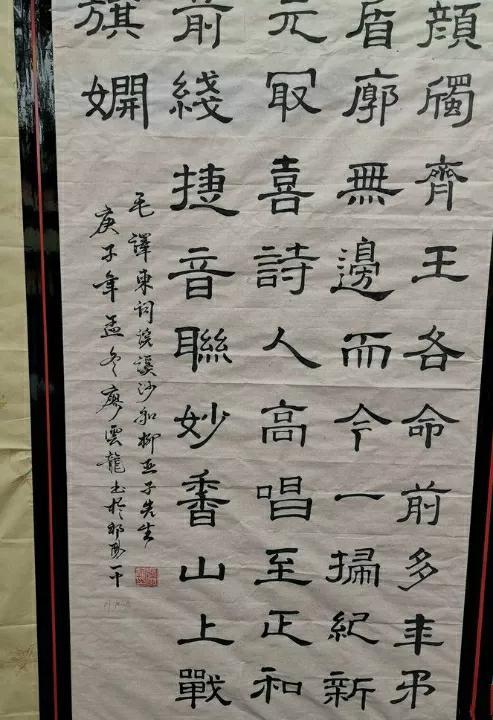 顏觸齊王各命前多年矛
盾廓無邊而今一掃紀新
元冣喜詩人高唱至正和
前綫捷音聯妙香山上戰
旗妍
毛澤東詞浣溪沙和柳亞子先生
庚子年孟冬廖雲龍书於邵陽